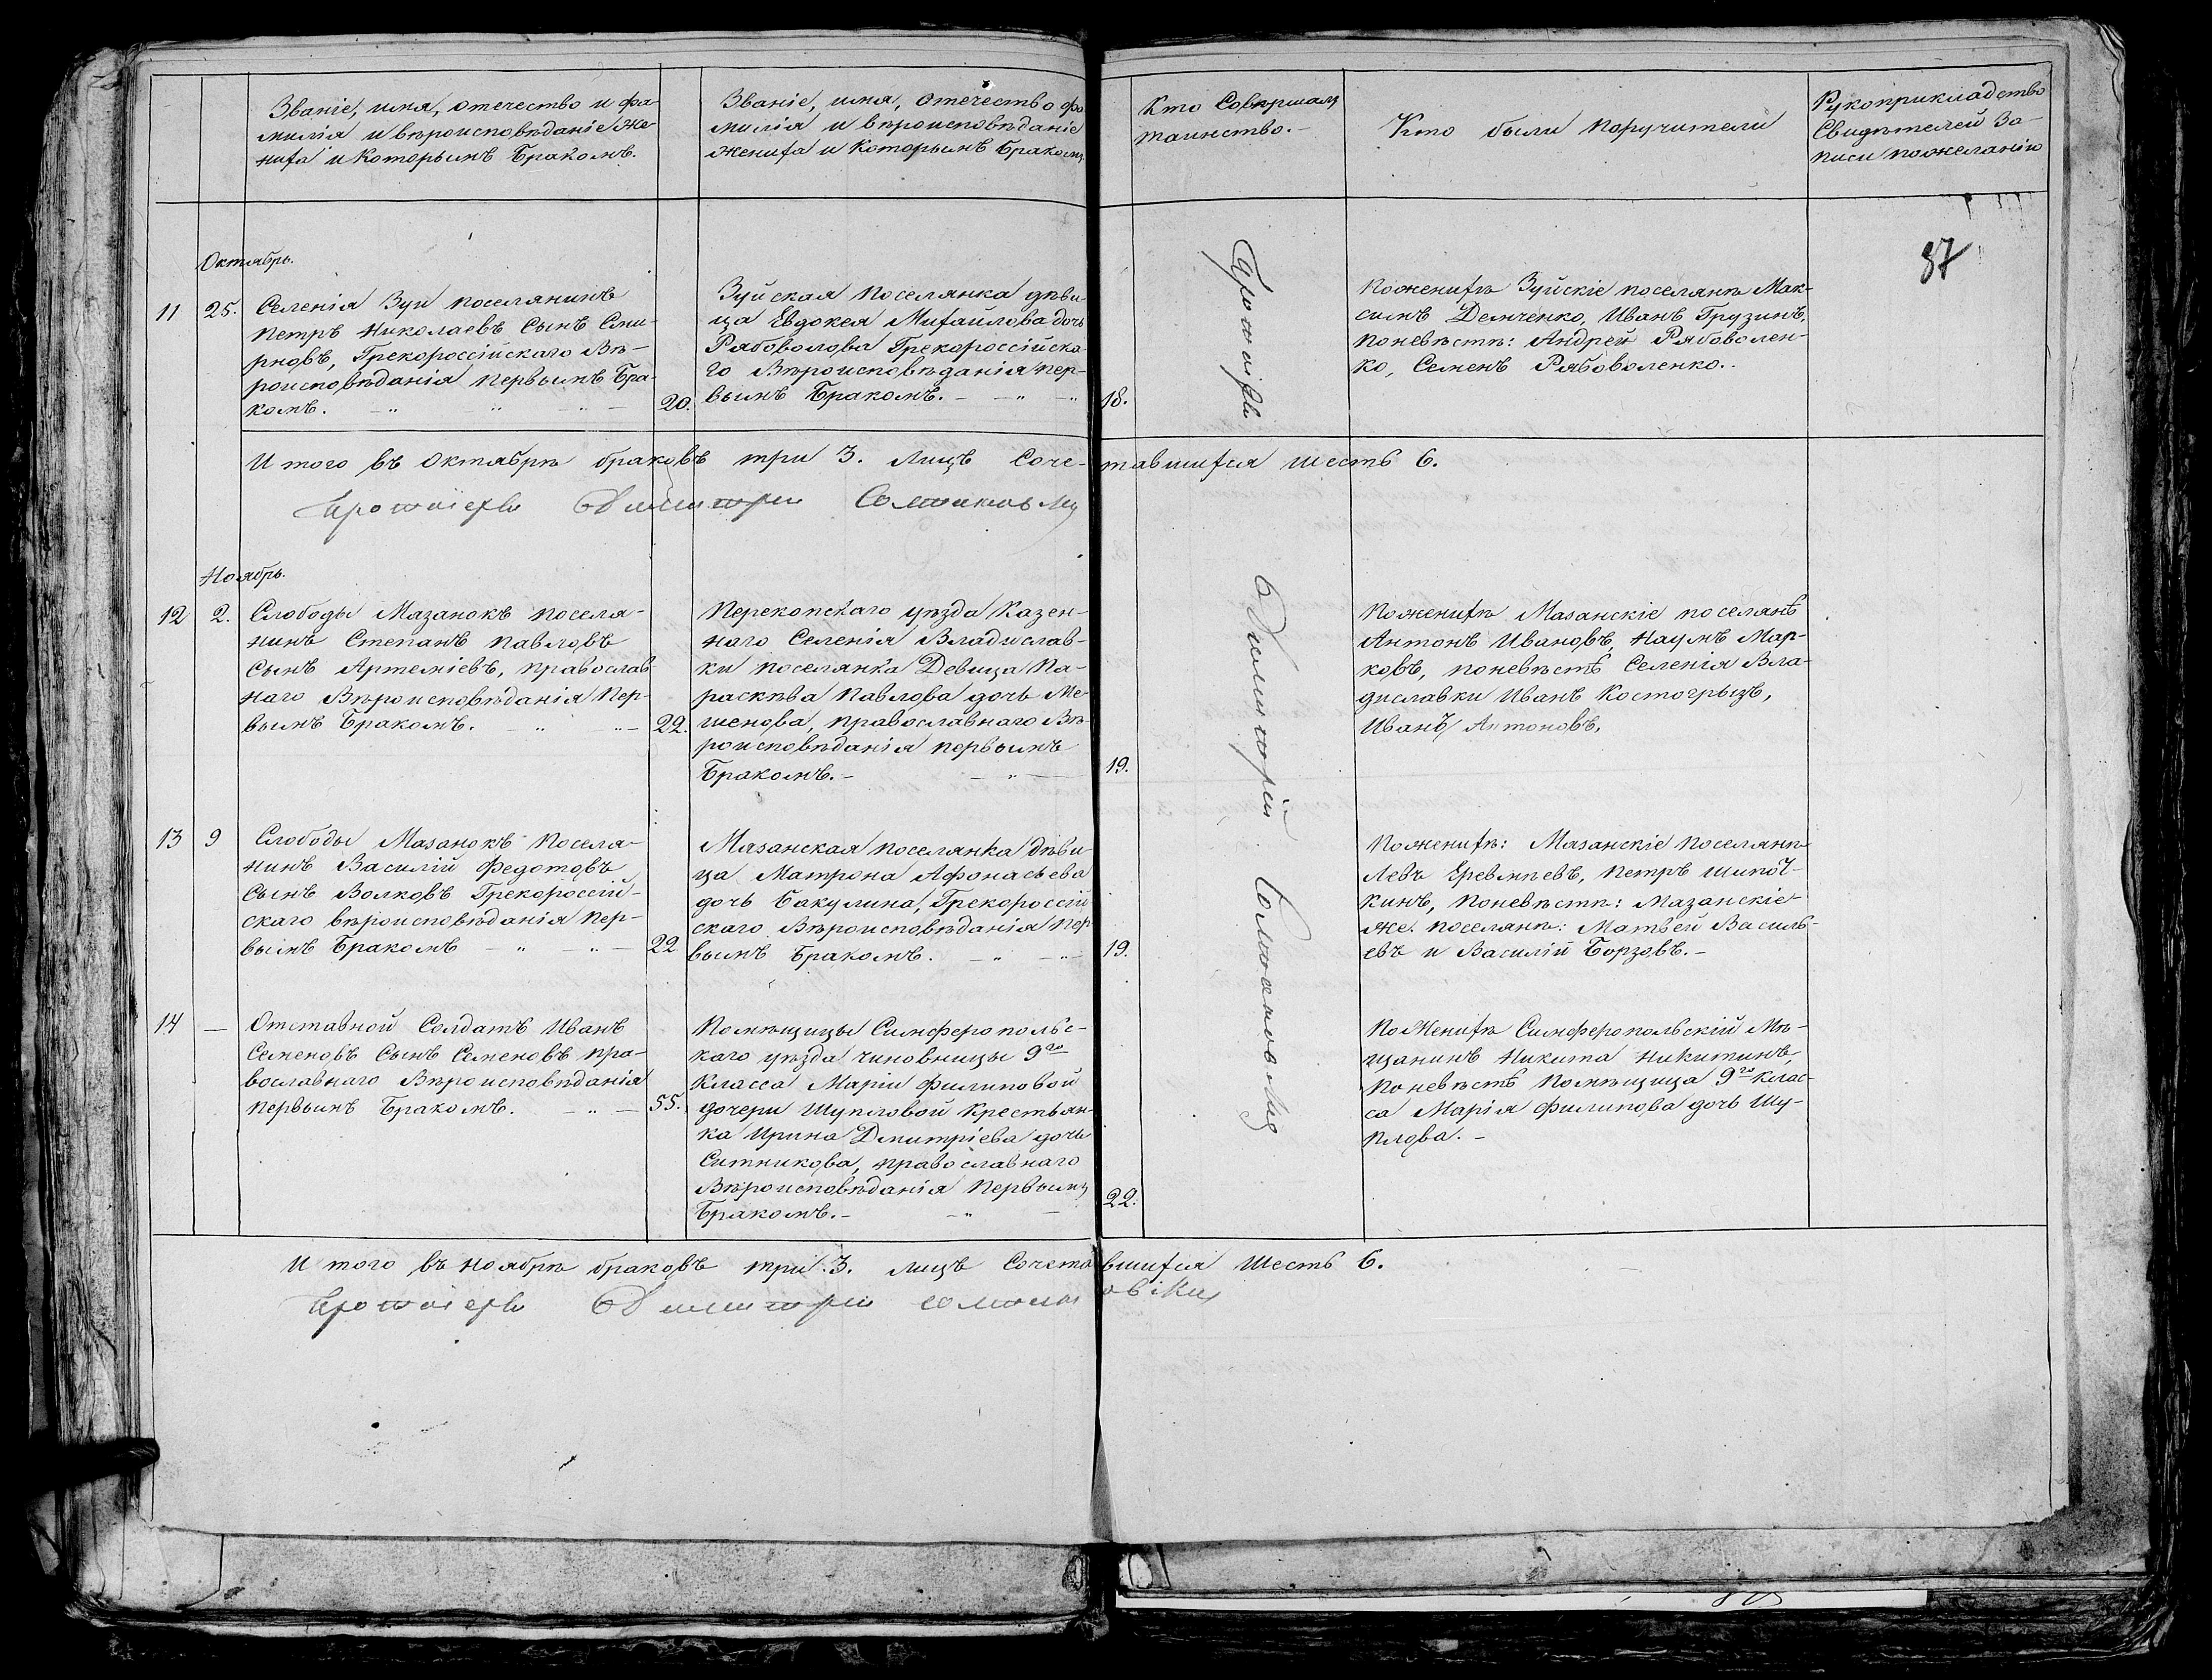 Званіе, имя, отечество и фа-
милія и вѣроисповѣданіе же-
ниха и которымъ бракомъ.
Званіе, имя, отечество фа
милія и вѣроисповѣданіе
жениха и которымъ бракомъ
Кто Совершалъ
таинство.-
Кто были поручители
Рукоприкладство
Свидѣтелей За-
писи пожеланію
87
Октябрь.
11
25.
Селенія Зуи поселянинъ
Петръ Николаевъ Сынъ Сми-
рновъ, Грекороссійскаго Вѣ-
роисповѣданія первымъ Бра-
комъ.
20.
Зуйская поселянка дѣви-
ца Евдокея Михайлова дочь
Рябоволова Грекороссійска-
го Вѣроисповѣданія пер-
вымъ Бракомъ.
18.
Поженихѣ Зуйскіе поселянѣ Мак-
симъ Демченко, Иванъ Грузинъ,
поневѣстѣ: Андрей Рябоволен-
ко, Семенъ Рябоволенко.
Итого въ Октябрѣ браковъ три 3. Лицъ Соче-тавшихся шесть 6.
Протоіерей Димитрій
Ноябрь.
12
2.
Слободы Мазанокъ поселя-
нинъ Степанъ Павловъ
Сынъ Артеміевъ, православ-
наго Вѣроисповѣданія Пер-
вымъ Бракомъ.
22.
Перекопскаго уѣзда Казен-
наго Селенія Владислав-
ки поселянка Девица Па-
раскѣва Павлова дочь Ме-
шенова, православнаго Вѣ-
роисповѣданія первымъ
Бракомъ.-
19.
Поженихѣ Мазанскіе поселянѣ
Антонъ Ивановъ, Наумъ Мар-
ковъ, поневѣстѣ Селенія Вла-
диславки Иванъ Костогрызъ,
Иванъ Антоновъ.
13
9
Слободы Мазанокъ Поселя-
нинъ Василій Федотовъ
Сынъ Волковъ Грекороссій-
скаго вѣроисповѣданія пер-
вымъ Бракомъ
22.
Мазанская поселянка дѣви-
ца Матрона Афонасьева
дочь Бакулина, Грекороссій
скаго Вѣроисповѣданія Пер
вымъ Бракомъ.
19.
Поженихѣ: Мазанскіе поселянѣ
Левъ, Петръ
поневѣстѣ: Мазанскіе
же поселянѣ: Матвей Василь-
евъ и Василій Борзовъ.-
14
—
Отставной Солдатъ Иванъ
Семеновъ Сынъ Семеновъ пра-
вославнаго Вѣроисповѣданія
первымъ Бракомъ.
55.
Помѣщицы Симферопольс-
каго уѣзда чиновницы 9го
Класса Маріи Филиповой
дочери Шупловой Крестьян-
ка Ирина Дмитріева дочь
Ситникова, православнаго
Вѣроисповѣданія Первымъ
Бракомъ.-
22.
Поженихѣ Симферопольскій Мѣ-
щанинъ Никита Никитинъ,
поневѣстѣ помѣщица 9го клас-
са Марія Филипова дочь Шу-
плова.-
Протоіерей Димитрій
Итого въ Ноябрѣ браковъ три 3. лицъ Сочетавшихся шесть 6.
Протоіерей Димитрій